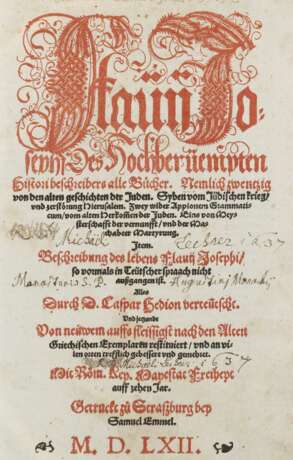 Flauij Jo-
sephi Des Hochberüempten
Histori beschreibers alle Bücher. Nemlich zwentzig
von den alten geschichten der Juden. Syben vom Jüdischen krieg/
vnd zerstörung Hierusalem. Zwey wider Appionem Grammati-
cum/ vom alten Herkoffien der Juden. Eins von Mey-
sterschafft der vernunfft/ vnd der Ma-
chabeer Martyrung.
Michael Lechner 1637
Item.
Beschreibung des lebens Flauij Josephi/
so vormals in Teütscher spraach nicht
außgangen ist.
Monasterii S. P. Augustini
Alles
Durch D. Caspar Hedion verteütscht.
Vnd jetzund
Von neüwem auffs fleissigst nach den Alten
Griechischen Exemplarn restituiert/ vnd an vi-
len orten trefflich gebessert vnd gemehret.
Michael Lechner 1637
Mit Röm. Key. Mayestat Freiheyt
auff zehen Jar.
Getruckt zů Straßburg bey
Samuel Emmel.
M. D. LXII.